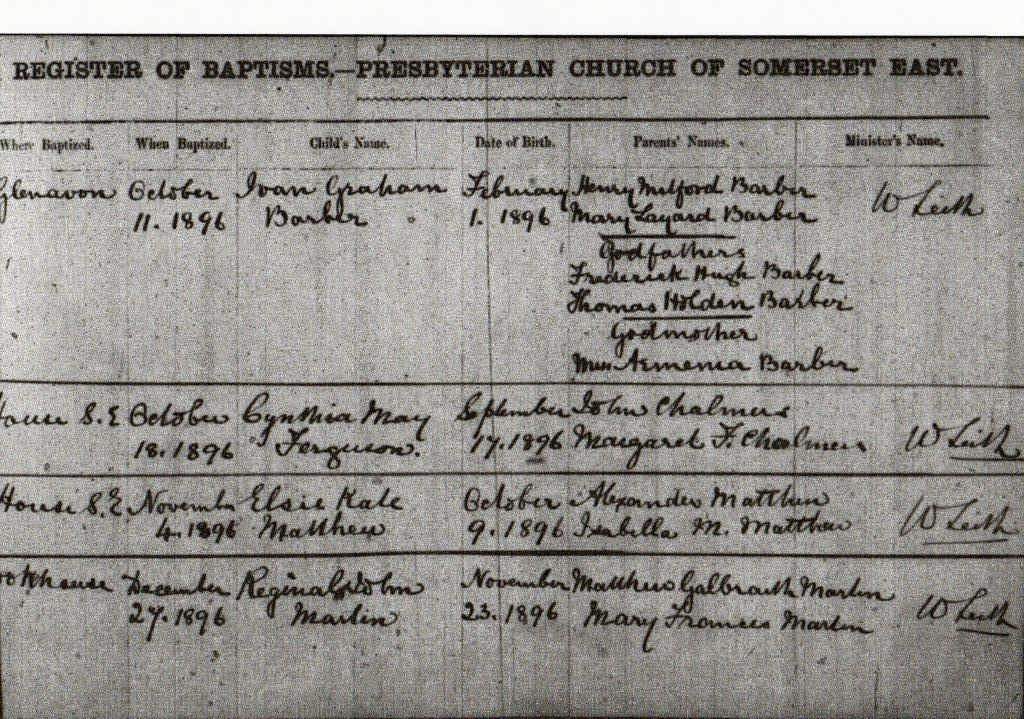 REGISTER OF BAPTISMS.—PRESBYTERIAN CHURCH OF SOMERSET EAST.
Where Baptized. When Baptized. Child's Name. Date of Birth. Parents' Names. Minister's Name.
Glenavon October Ivan Graham February Henry Mitford Barber W Leith
11. 1896 Barber 1. 1896 Mary Layard Barber
Godfathers
Frederick Hugh Barber
Thomas Holden Barber
Godmother
Miss Armenia Barber
House S.E October Cynthia May September John Chalmers
18. 1896 Ferguson. 17. 1896 Margaret F. Chalmers W Leith
House S.E. November Elsie Kate October Alexander Matthew
4. 1896 Matthew 9. 1896 Isabella M. Matthew W Leith
December Reginald John November Matthew Galbraith Martin
27. 1896 Martin 23. 1896 Mary Frances Martin W Leith